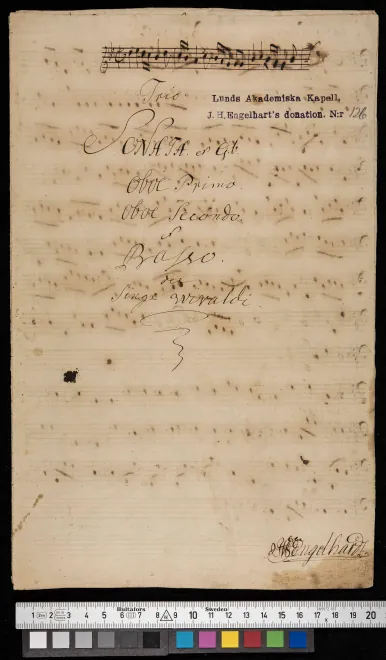 Trio
Lunds Akademiska Kapell,
J. H. Engelhart's donation. N:r 126
SONATA ex Gb
Oboe Primo.
Oboe Secondo.
e
Basso.
del
Sengr Wivaldi.
Engelhardt
1 2 3 4 5 Hultafors 6 7 8 9 10 Sweden 11 12 13 14 15 16 17 18 19 20